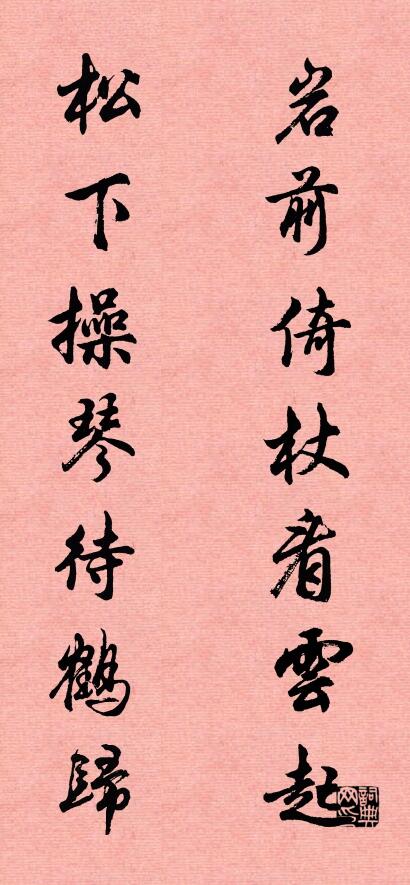 岩前倚杖看雲起
松下操琴待鶴歸